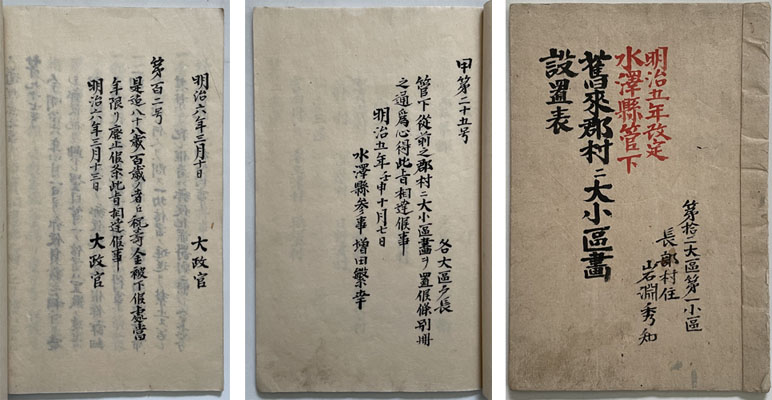 明治五年改定
水澤縣管下
舊來郡村ニ大小區畫
設置表
第拾二大區第一小區
長部村住
岩淵秀知
甲第二十五号
各大區戸長
管下従前之郡村ニ大小區畫ヲ置候條別冊
之通爲心得此旨相達候事
明治五年壬申十月七日
水澤縣参事 増田繁幸
明治六年三月十日
大政官
第百二号
是迠八十八歳百歳ノ者ヒ祝壽金被下候處當
年限リ廃止候条此旨相達候事
明治六年三月十三日
大政官